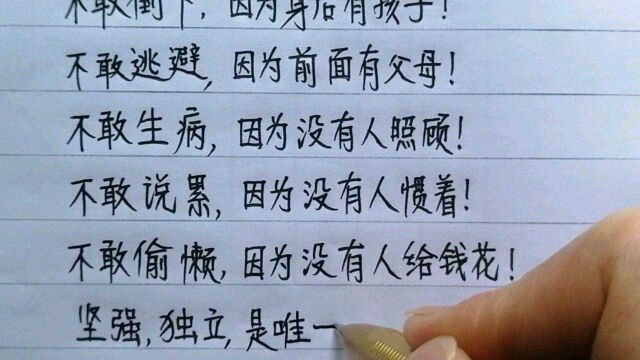 不敢倒下,因为身后有孩子!
不敢逃避,因为前面有父母!
不敢生病,因为没有人照顾!
不敢说累,因为没有人惯着!
不敢偷懒,因为没有人给钱花!
坚强,独立,是唯一